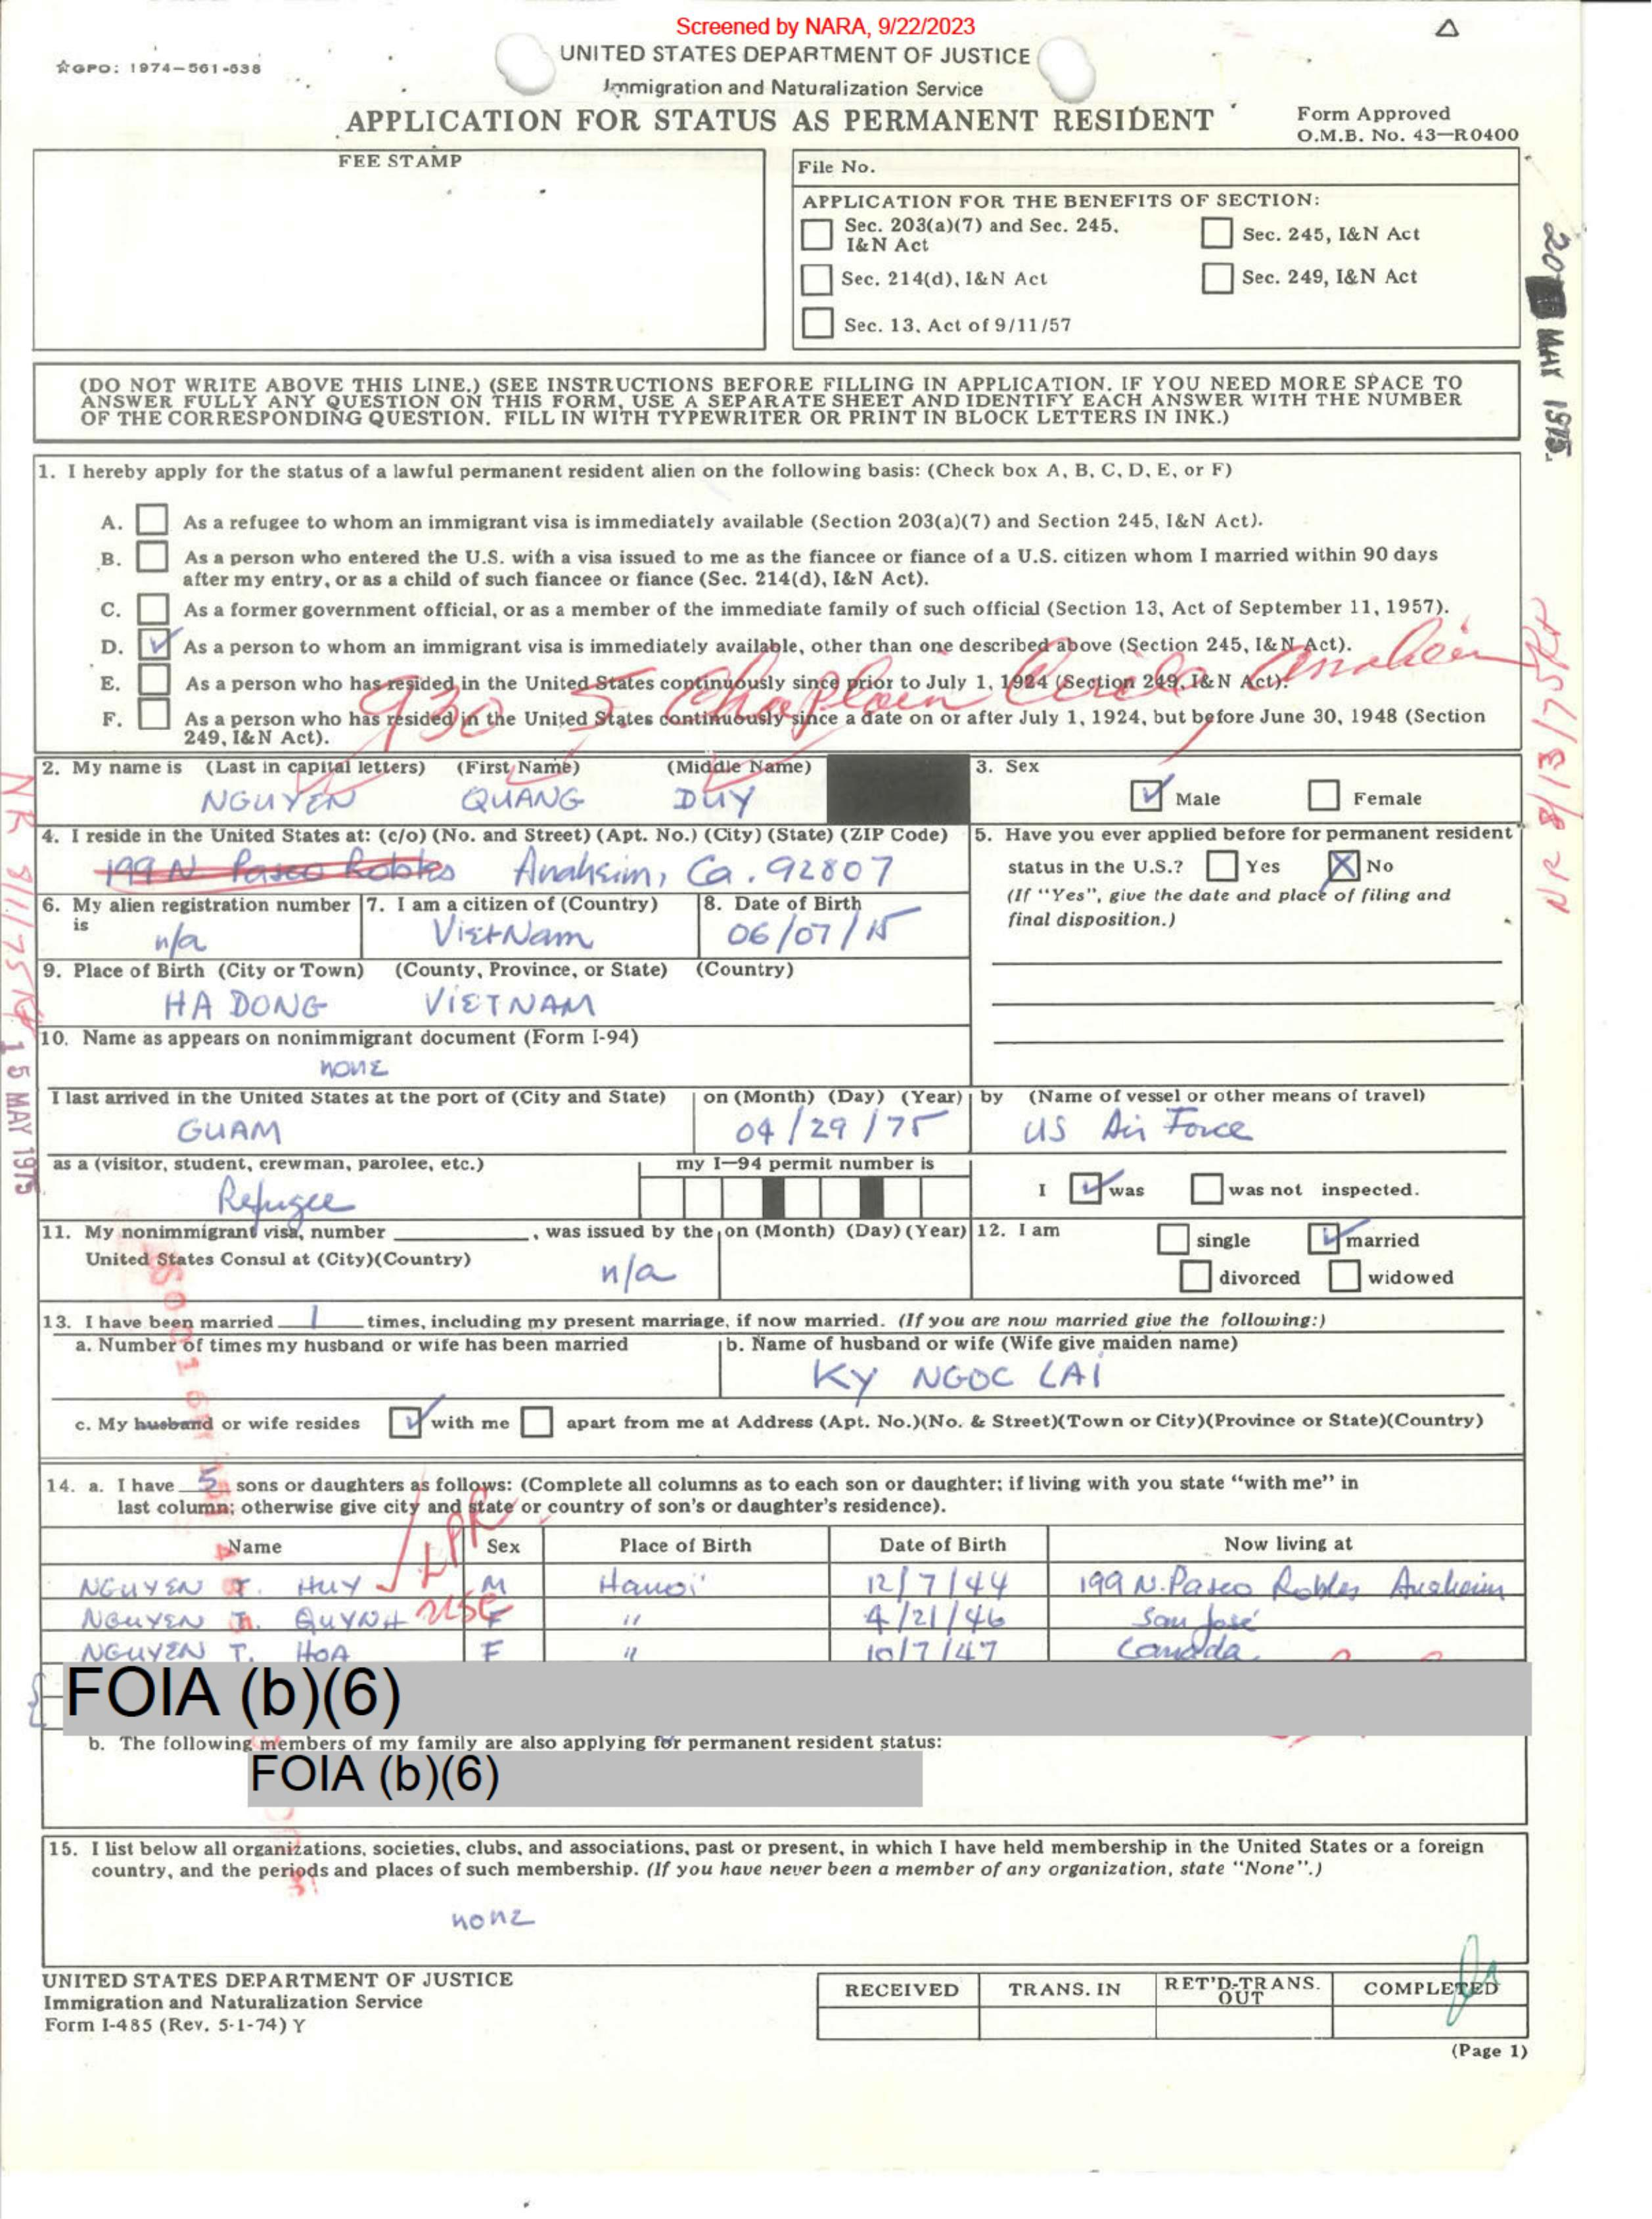 Screened by NARA, 9/22/2023
☆GPO: 1974-561-638
UNITED STATES DEPARTMENT OF JUSTICE
Immigration and Naturalization Service
APPLICATION FOR STATUS AS PERMANENT RESIDENT
Form Approved
O.M.B. No. 43—R0400
FEE STAMP
File No.
APPLICATION FOR THE BENEFITS OF SECTION:
Sec. 203(a)(7) and Sec. 245, I&N Act
Sec. 245, I&N Act
Sec. 214(d), I&N Act
Sec. 249, I&N Act
Sec. 13, Act of 9/11/57
20 MAY 1975.
(DO NOT WRITE ABOVE THIS LINE.) (SEE INSTRUCTIONS BEFORE FILLING IN APPLICATION. IF YOU NEED MORE SPACE TO
ANSWER FULLY ANY QUESTION ON THIS FORM, USE A SEPARATE SHEET AND IDENTIFY EACH ANSWER WITH THE NUMBER
OF THE CORRESPONDING QUESTION. FILL IN WITH TYPEWRITER OR PRINT IN BLOCK LETTERS IN INK.)
1. I hereby apply for the status of a lawful permanent resident alien on the following basis: (Check box A, B, C, D, E, or F)
A. As a refugee to whom an immigrant visa is immediately available (Section 203(a)(7) and Section 245, I&N Act).
B. As a person who entered the U.S. with a visa issued to me as the fiancee or fiance of a U.S. citizen whom I married within 90 days
after my entry, or as a child of such fiancee or fiance (Sec. 214(d), I&N Act).
C. As a former government official, or as a member of the immediate family of such official (Section 13, Act of September 11, 1957).
D. As a person to whom an immigrant visa is immediately available, other than one described above (Section 245, I&N Act).
E. As a person who has resided in the United States continuously since prior to July 1, 1924 (Section 249, I&N Act).
930 S Chaplain Circle Anaheim
F. As a person who has resided in the United States continuously since a date on or after July 1, 1924, but before June 30, 1948 (Section
249, I&N Act).
NR 8/13/75
2. My name is (Last in capital letters) (First Name) (Middle Name)
NGUYEN QUANG DUY
3. Sex
Male Female
4. I reside in the United States at: (c/o) (No. and Street) (Apt. No.) (City) (State) (ZIP Code)
199 N Paseo Robles Anaheim, Ca. 92807
5. Have you ever applied before for permanent resident
status in the U.S.? Yes No
(If "Yes", give the date and place of filing and
final disposition.)
6. My alien registration number is
n/a
7. I am a citizen of (Country)
VietNam
8. Date of Birth
06/07/15
9. Place of Birth (City or Town) (County, Province, or State) (Country)
HA DONG VIETNAM
10. Name as appears on nonimmigrant document (Form I-94)
none
15 MAY 1975
I last arrived in the United States at the port of (City and State) on (Month) (Day) (Year) by (Name of vessel or other means of travel)
GUAM 04/29/75 US Air Force
as a (visitor, student, crewman, parolee, etc.) my I—94 permit number is
Refugee
I was was not inspected.
11. My nonimmigrant visa, number , was issued by the on (Month) (Day) (Year)
United States Consul at (City)(Country)
n/a
12. I am single married
divorced widowed
13. I have been married 1 times, including my present marriage, if now married. (If you are now married give the following:)
a. Number of times my husband or wife has been married
b. Name of husband or wife (Wife give maiden name)
KY NGOC LAI
c. My husband or wife resides with me apart from me at Address (Apt. No.)(No. & Street)(Town or City)(Province or State)(Country)
14. a. I have 5 sons or daughters as follows: (Complete all columns as to each son or daughter; if living with you state "with me" in
last column; otherwise give city and state or country of son's or daughter's residence).
LPR
Name Sex Place of Birth Date of Birth Now living at
NGUYEN T. HUY M Hanoi 12/7/44 199 N. Paseo Robles Anaheim
NGUYEN T. QUYNH USC F " 4/21/46 San José
NGUYEN T. HOA F " 10/7/47 Canada
FOIA (b)(6)
b. The following members of my family are also applying for permanent resident status:
FOIA (b)(6)
15. I list below all organizations, societies, clubs, and associations, past or present, in which I have held membership in the United States or a foreign
country, and the periods and places of such membership. (If you have never been a member of any organization, state "None".)
none
UNITED STATES DEPARTMENT OF JUSTICE
Immigration and Naturalization Service
Form I-485 (Rev. 5-1-74) Y
RECEIVED TRANS. IN RET'D-TRANS. OUT COMPLETED
(Page 1)